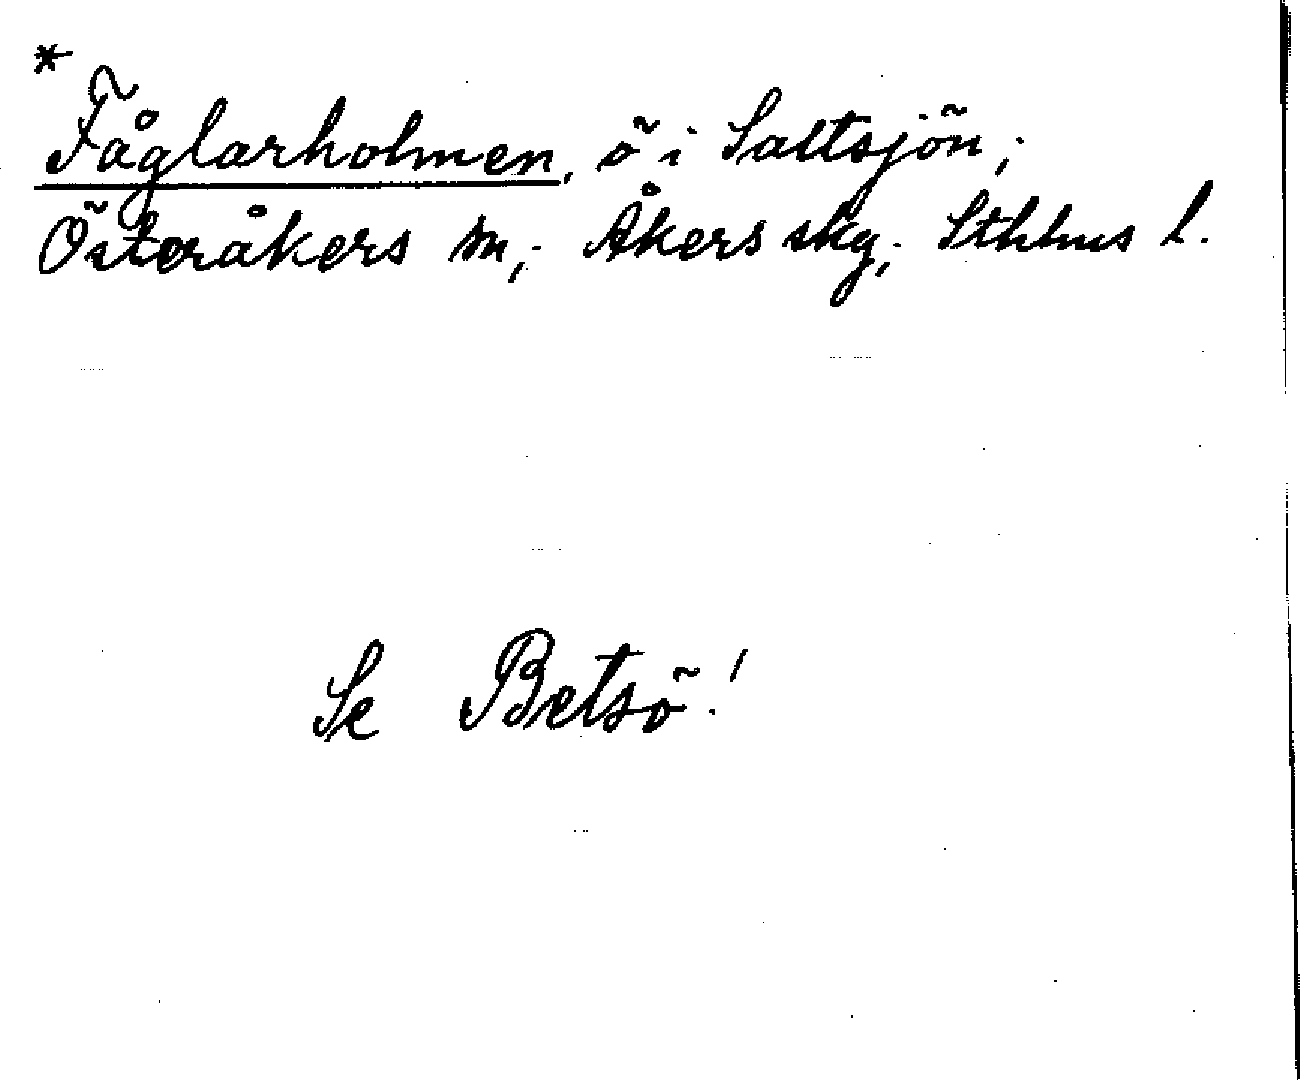 *
Fåglarholmen, ö i Saltsjön;
Österåkers sn; Åkers skg; Sthlms l.
Se Betsö!